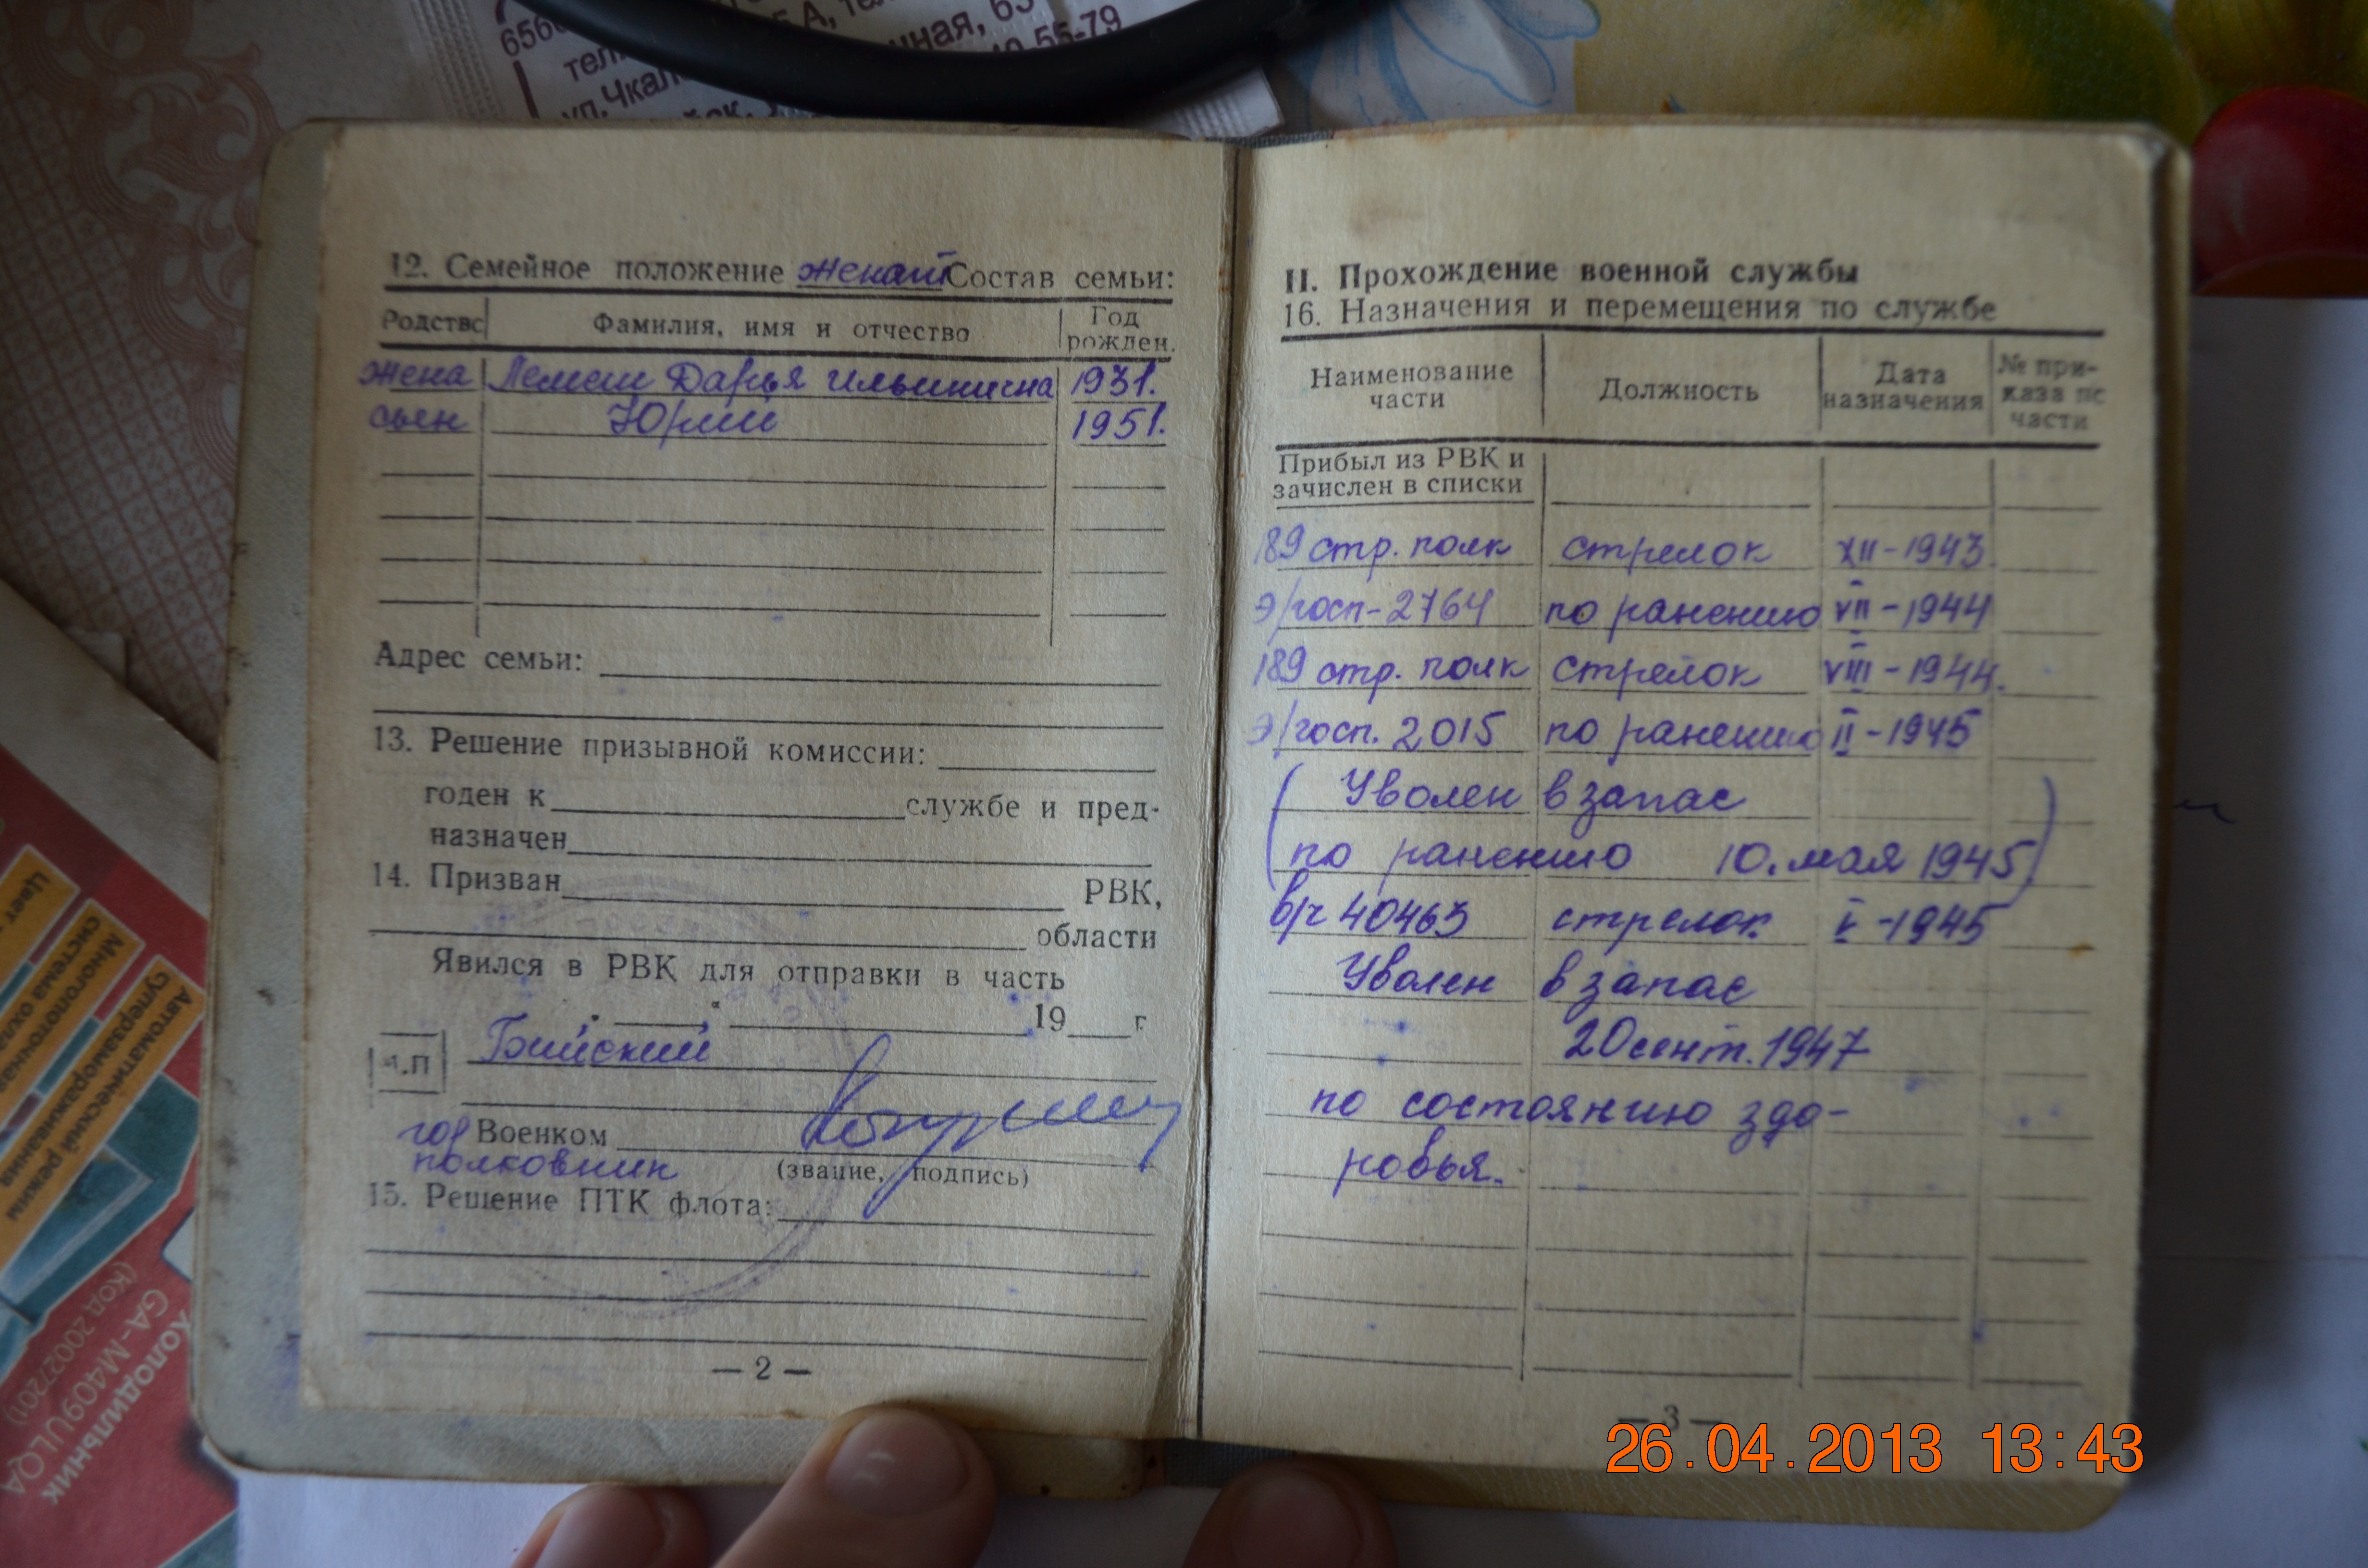 656
5А, тел
чная, 65
тел
40-55-79
ул.Чкал
12. Семейное положение женат Состав семьи:
Родство Фамилия, имя и отчество Год рожден.
жена Лемеш Дарья Ильинична 1931.
сын Юрий 1951.
Адрес семьи:
13. Решение призывной комиссии:
годен к службе и пред-
назначен
14. Призван РВК,
области
Явился в РВК для отправки в часть
19 г
М.П Бийский
гор Военком
полковник (звание, подпись)
15. Решение ПТК флота:
— 2 —
II. Прохождение военной службы
16. Назначения и перемещения по службе
Наименование части Должность Дата назначения № при-каза по части
Прибыл из РВК и
зачислен в списки
189 стр. полк стрелок XII-1943
э/госп-2764 по ранению VII-1944
189 стр. полк стрелок VIII-1944.
э/госп. 2015 по ранению II-1945
(Уволен в запас
по ранению 10. мая 1945)
в/ч 40463 стрелок V-1945
Уволен в запас
20 сент. 1947
по состоянию здо-
ровья.
— 3 —
26.04.2013 13:43
Цвет
Многопоточная
система охла
Автоматический режим
суперзамораживания
Холодильник
GA-M409ULQA
(код 2002720